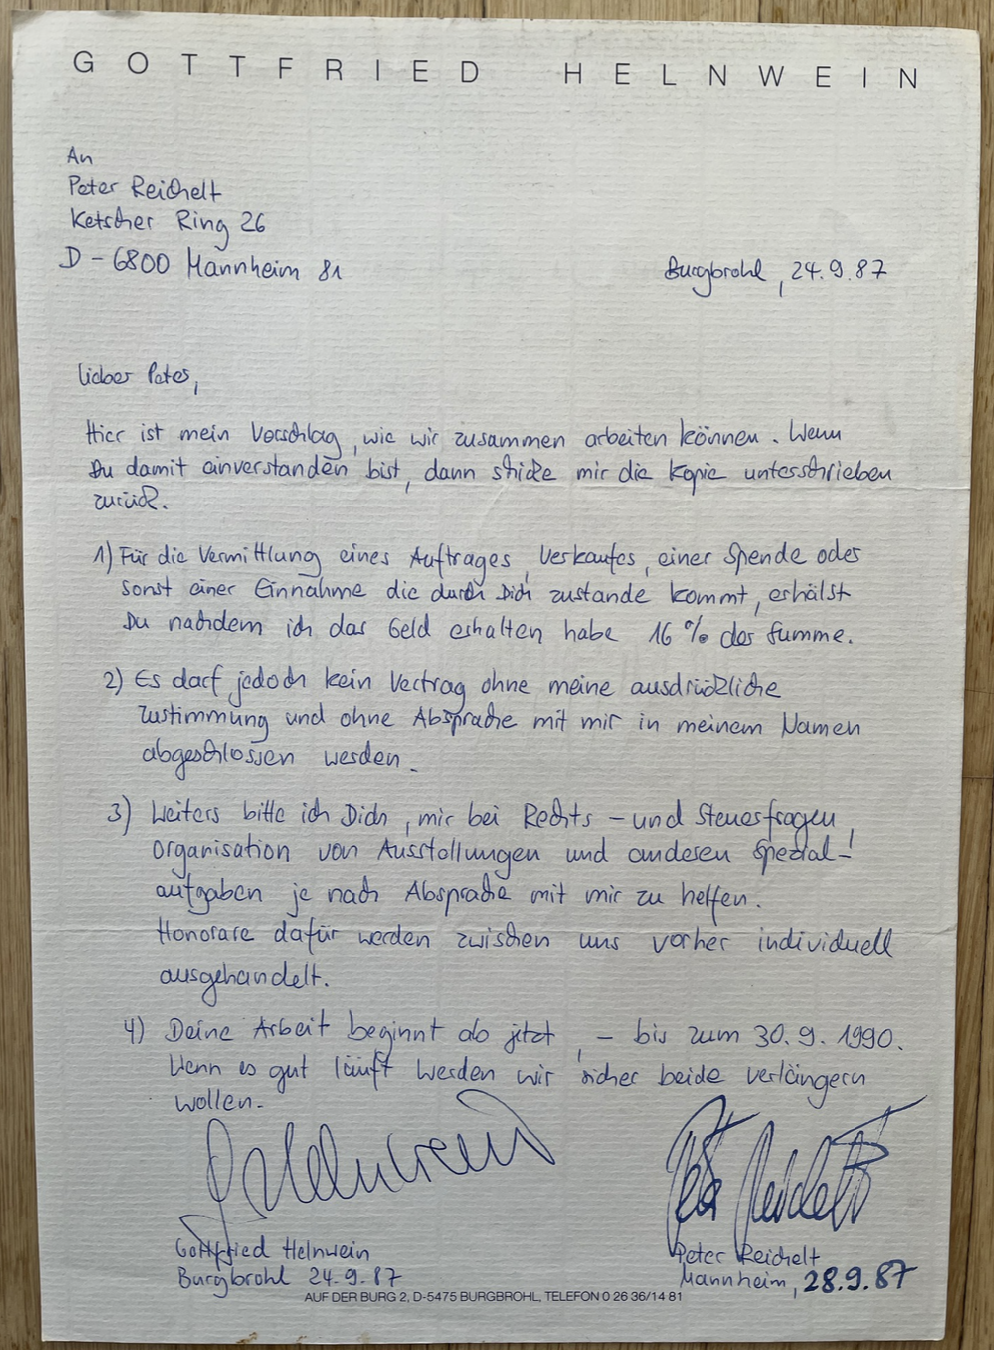 GOTTFRIED HELNWEIN
An
Peter Reichelt
Ketscher Ring 26
D - 6800 Mannheim 81
Burgbrohl, 24.9.87
Lieber Peter,
Hier ist mein Vorschlag, wie wir zusammen arbeiten können. Wenn
Du damit einverstanden bist, dann schicke mir die Kopie unterschrieben
zurück.
1) Für die Vermittlung eines Auftrages, Verkaufes, einer Spende oder
sonst einer Einnahme die durch Dich zustande kommt, erhälst
Du nachdem ich das Geld erhalten habe 16 % der Summe.
2) Es darf jedoch kein Vertrag ohne meine ausdrückliche
Zustimmung und ohne Absprache mit mir in meinem Namen
abgeschlossen werden.
3) Weiters bitte ich Dich, mir bei Rechts - und Steuerfragen,
Organisation von Ausstellungen und anderen Spezial-
aufgaben je nach Absprache mit mir zu helfen.
Honorare dafür werden zwischen uns vorher individuell
ausgehandelt.
4) Deine Arbeit beginnt ab jetzt, - bis zum 30.9.1990.
Wenn es gut läuft werden wir sicher beide verlängern
wollen.
G Helnwein
Peter Reichelt
Gottfried Helnwein
Peter Reichelt
Burgbrohl 24.9.87
Mannheim, 28.9.87
AUF DER BURG 2, D-5475 BURGBROHL, TELEFON 0 26 36/14 81